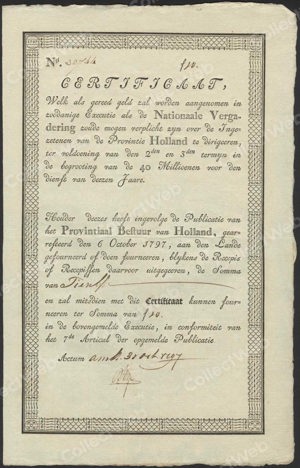 No.
f10.
CERTIFICAAT,
Welk als gereed geld zal worden aangenomen in
zoodanige Executie als de Nationaale Verga-
dering zoude mogen verpligt zyn over de Inge-
zetenen van de Provintie Holland te dirigeeren,
ter voldoening van den 2den en 3den termyn in
de begrooting van de 40 Millioenen voor den
dienst van deezen Jaare.
Houder deezes heeft ingevolge de Publicatie van
het Provintiaal Bestuur van Holland, gear-
resteerd den 6 October 1797, aan den Lande
gefourneerd of doen fourneeren, blykens de Recepis
of Recepissen daarvoor uitgegeeven, de Somma
van Tien
en zal mitsdien met dit Certificaat kunnen four-
neeren ter Somma van f10.
in de bovengemelde Executie, in conformiteit van
het 7de Articul der opgemelde Publicatie
Actum
CollectWeb